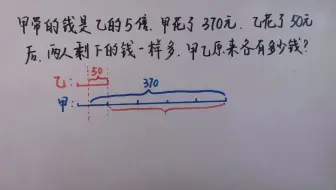 甲带的钱是乙的5倍.甲花了370元.乙花了50元
后.两人剩下的钱一样多.甲乙原来各有多少钱?
50
乙:
370
甲: